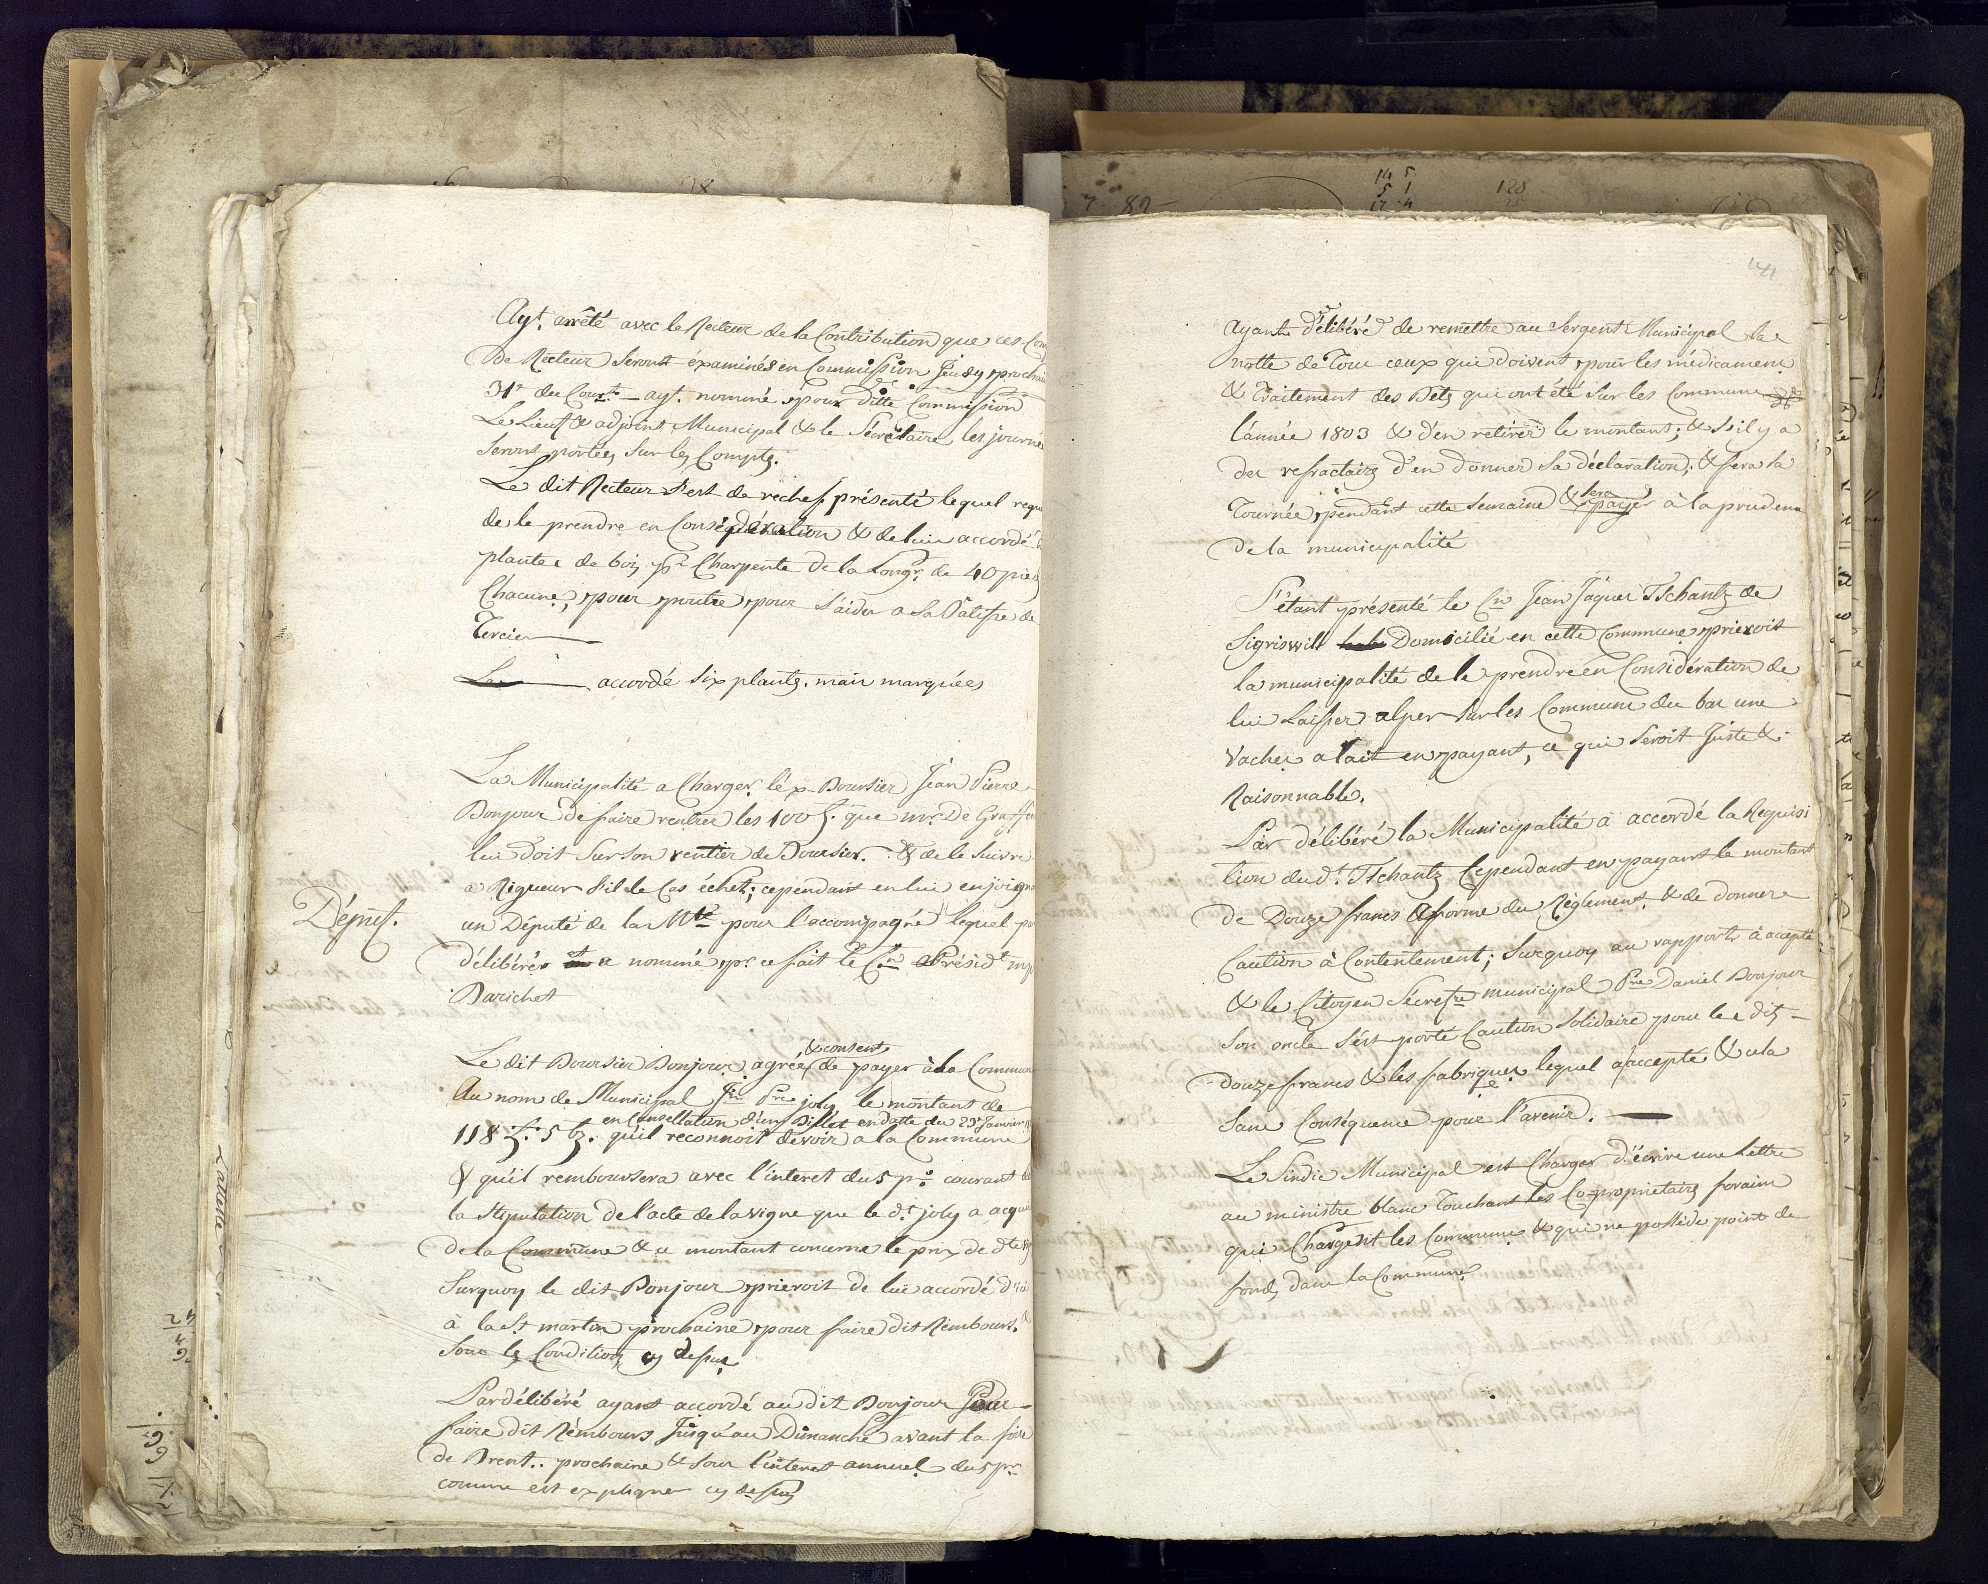 Ayt. arrêté avec le Recteur de la Contribution que ces
de Recteur seront éxaminés en Commission Jeudy prochain
31e du Court. ayt. nommé pour ditte Commission
Le Lieut & adjoint Municipal & le Sécrétaire, les journé
seront portées sur les Compts.
Le dit Recteur s'est de rechef présenté lequel
de le prendre en Considération & de lui accordé
plantes de bois pr Charpente de la Longr. de 40 pied
Chacune, pour poutre pour s'aider a Sa Bâtisse de
Tercier
accordé six plants. mais marquées
La Municipalité a Charger l'éx-Boursier Jean Pierre
Bonjour de faire rentrer les 100 que mr. De
lui doit sur son rentier de Boursier. & de le suivre
a Rigueur s'il le Cas échet; cependant en lui
Député.
un Député de la Mté pour l'accompagné lequel
délibéré a nommé pr. ce fait le Cen Présidt
Barichet
& consent
Le dit Boursier Bonjour agrée de payer à la Commune
Au nom de Municipal Jn Pre joly le montant de
en Cansellation d'un Billet en datte du 23e Janvier
118 5 bz. qu'il reconnoit devoir a la Commune
& qu'il remboursera avec l'interet du 5 po. courant
la Stipulation de l'acte de la vigne que le dt. joly a
de la Commune & ce montant concerne le prix de dte
Surquoy le dit Bonjour prieroit de lui accordé
à la St. martin prochaine pour faire dit Rembours.
sous les Conditions cy dessus
Par délibéré ayant accordé au dit Bonjour Pour
faire dit Rembours Jusqu'au Dimanche avant la foire
de Brent.. prochaine & sous l'interet annuel du 5 pr
comme est expliquer cy dessus
141
Ayant délibéré de remettre au Sergent Municipal la
notte de Tous ceux qui doivent pour les médicamens
& Traitement des Bets qui ont été sur les Commune
l'année 1803 & d'en retirer le montant; & s'il y a
des refractaires d'en donner Sa déclaration; & fera sa
sera
Tournée pendant cette Semaine & payer à la prudence
de la municipalité
S'étant présenté le Cen Jean Jaques Tschantz de
Sigriswill Domicilié en cette Commune prieroit
la municipalité de le prendre en Considération de
lui Laisser alper sur les Communs du bas une
Vaches a lait en payant, ce qui seroit Juste &
Raisonnable.
Par délibéré la Municipalité a accordé la Requisi
tion du dt. Tschantz Cependant en payant le montant
de Douze francs a forme du Réglement, & de donner
Caution à Contentement; Surquoy au rapport a accepté
& le Citoyen Sécrétre municipal Pre Daniel Bonjour
Son oncle s'est porté Caution solidaire pour les dits
douze francs & les fabriques lequel a accepté & cela
Sans Conséquence pour l'avenir.
Le Sindic Municipal est Charger d'écrire une Lettre
au ministre blanc Touchant les Co-proprietaires forains
qui Chargent les Communs & qui ne possède point de
fonds dans la Commune